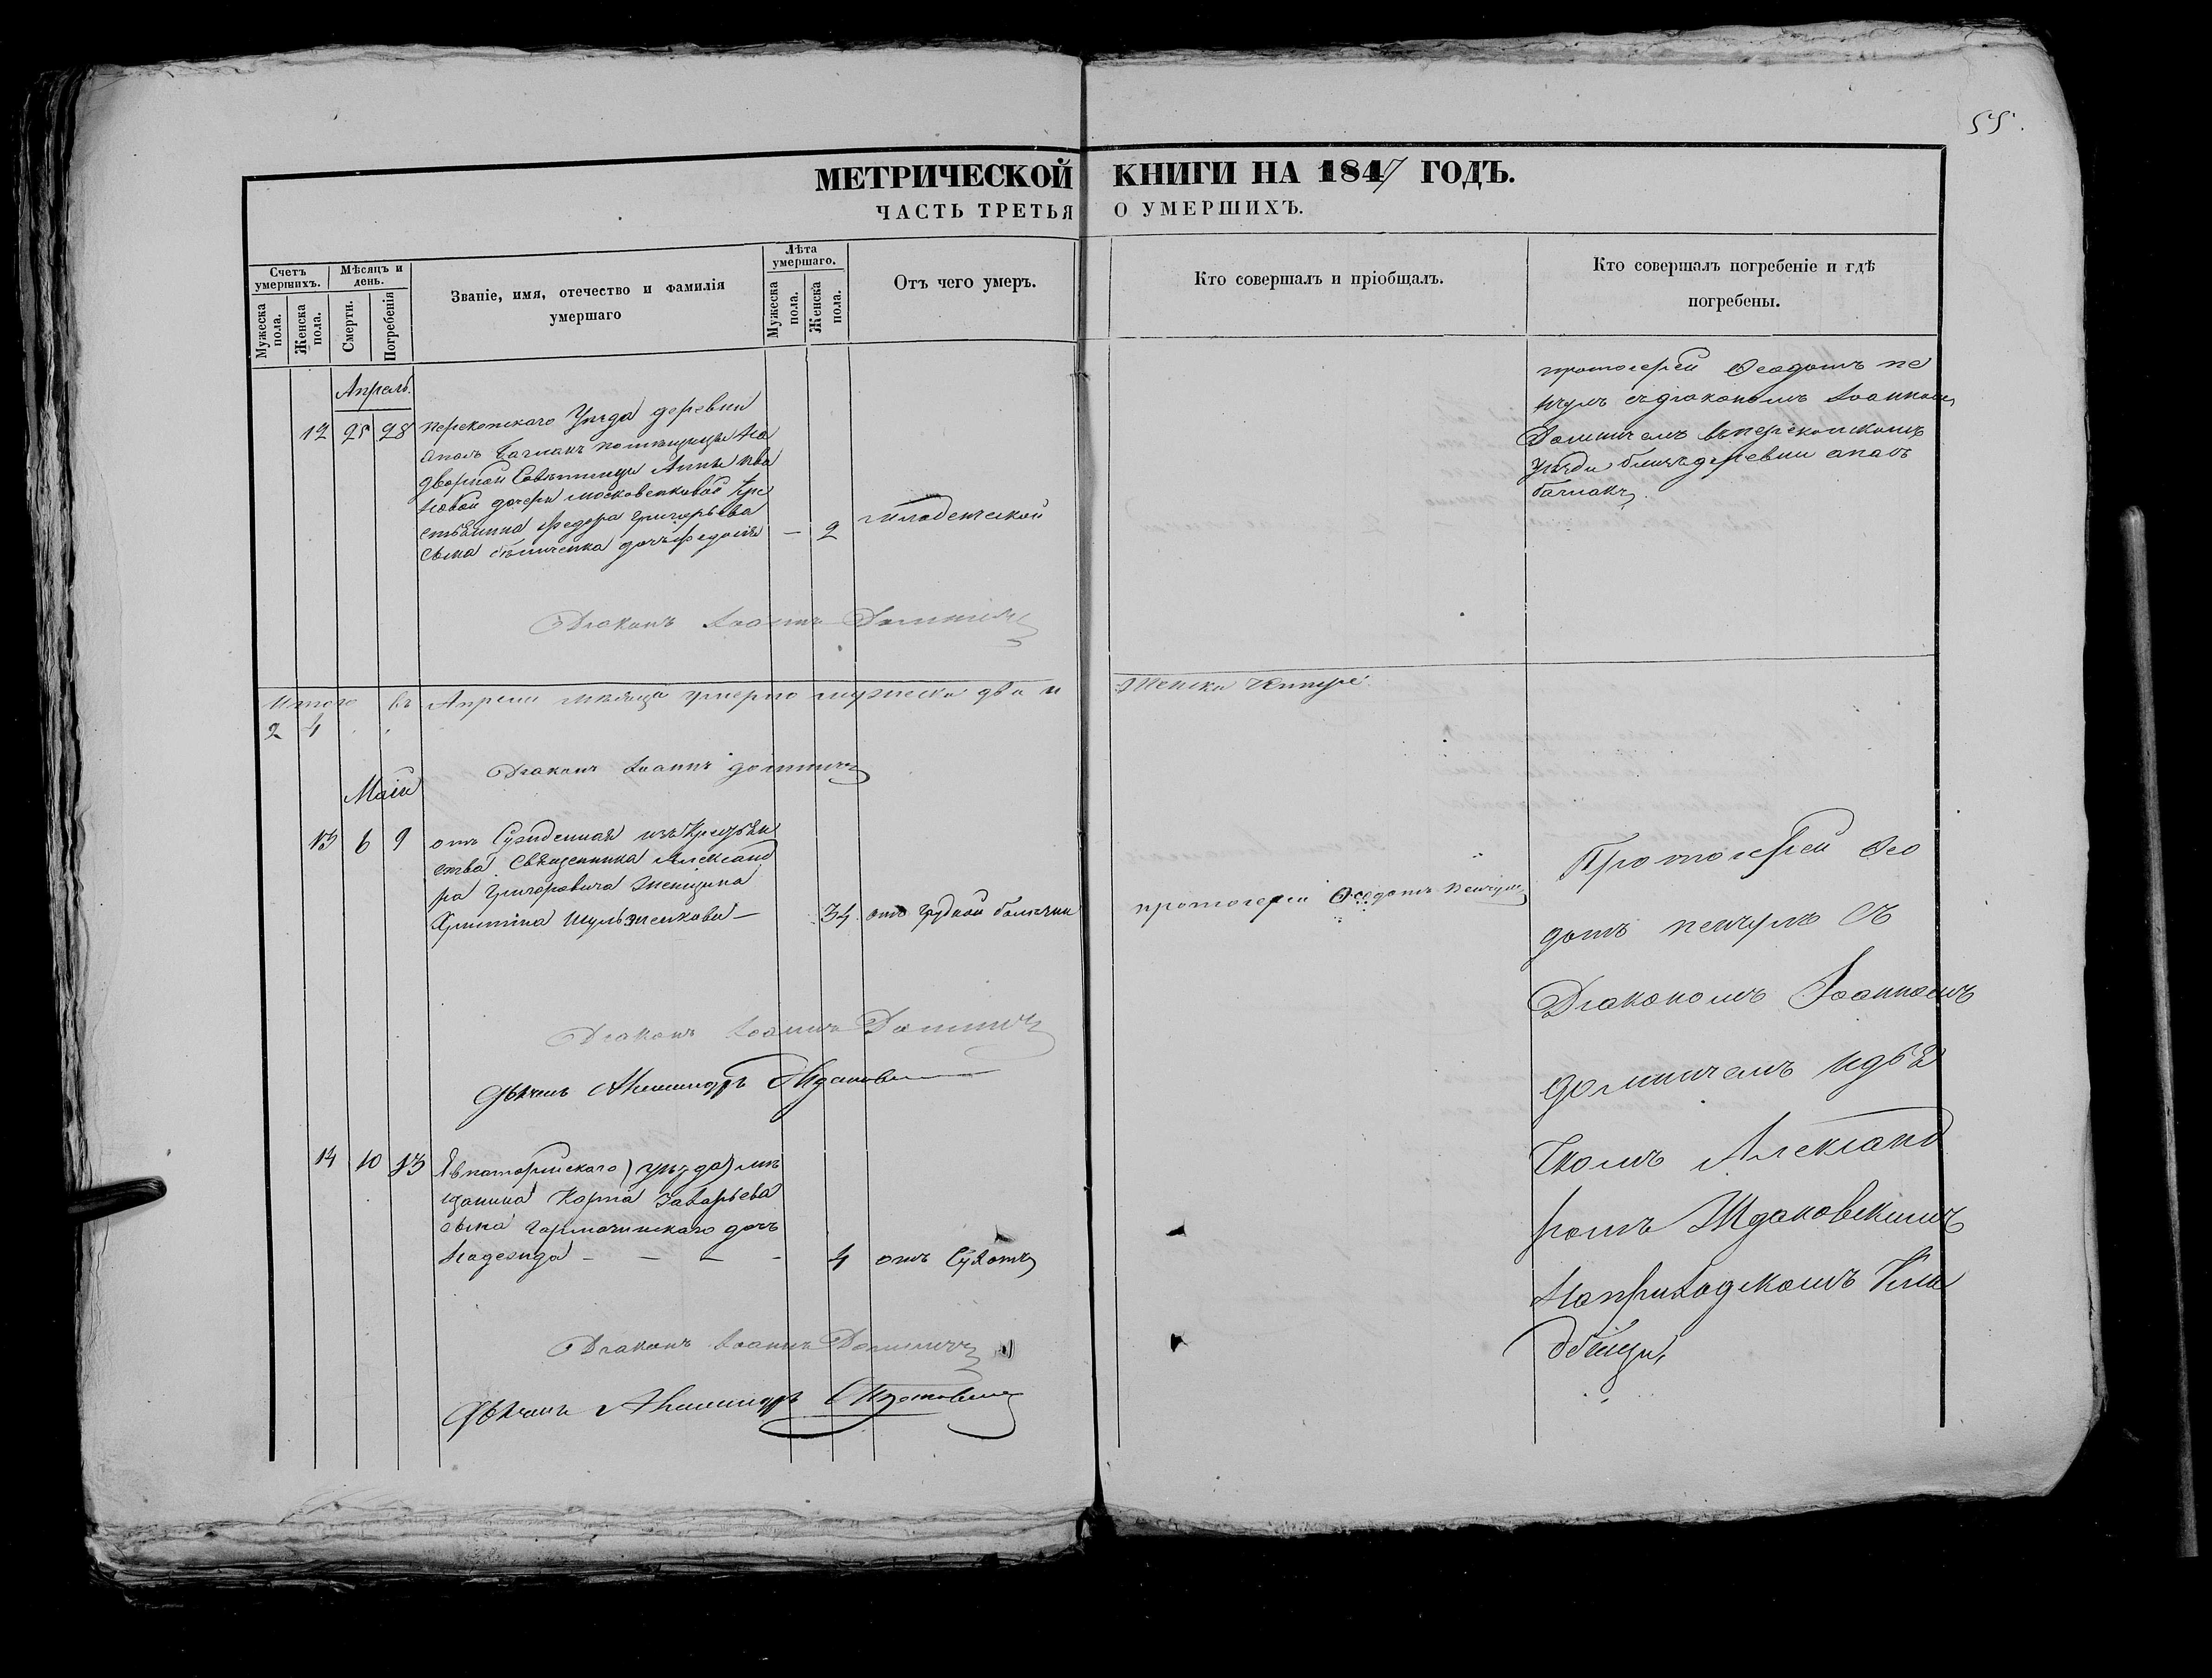 55.
МЕТРИЧЕСКОЙ КНИГИ НА 1847 ГОДЪ.
ЧАСТЬ ТРЕТЬЯ О УМЕРШИХЪ.
Счетъ умершихъ.
Мужеска пола.
Женска пола.
Мѣсяцъ и день.
Смерти.
Погребенія
Званіе, имя, отечество и фамилія
умершаго
Лѣта умершаго.
Мужеска пола.
Женска пола.
Отъ чего умеръ.
Кто совершалъ и пріобщалъ.
Кто совершалъ погребеніе и гдѣ
погребены.
Апрель.
12 25 28 перекопскаго Уезда деревни
помѣщицы На
дворной Совѣтницы Анны Ива
новой дочери Московенковой Кре
стьянина Федора Григорьева
сына дочь — 2 младенческой
протоіерей Феодотъ пе
нчулъ съ діакономъ Іоанномъ
въ перекопскомъ
уезди близъ деревни
Діаконъ Іоаннъ
Итого въ Апрели мѣсяца умерло мужеска два и женска четыре.
2 4
Діаконъ Іоаннъ
Маій
13 6 9 отъ Сужденная изъ
ства Священника Александ
ра Григоровича женщина
Христина Шульженкова — 34 отъ грудной болѣзни
протоіерей Феодотъ пенчулъ
Протоіерей Фео
дотъ пенчулъ съ
Діакономъ Іоанномъ
и дья
чкомъ Александ
ромъ Ждановскимъ
на приходскомъ Кла
дбищи,
Діаконъ Іоаннъ
Дьячекъ Александръ
14 10 13 Евпаторійскаго уезда мѣ
щанина Карпа Захарьева
сына дочь
Надежда — — — - 4 отъ Сухотъ
Діаконъ Іоаннъ
Дьячекъ Александръ